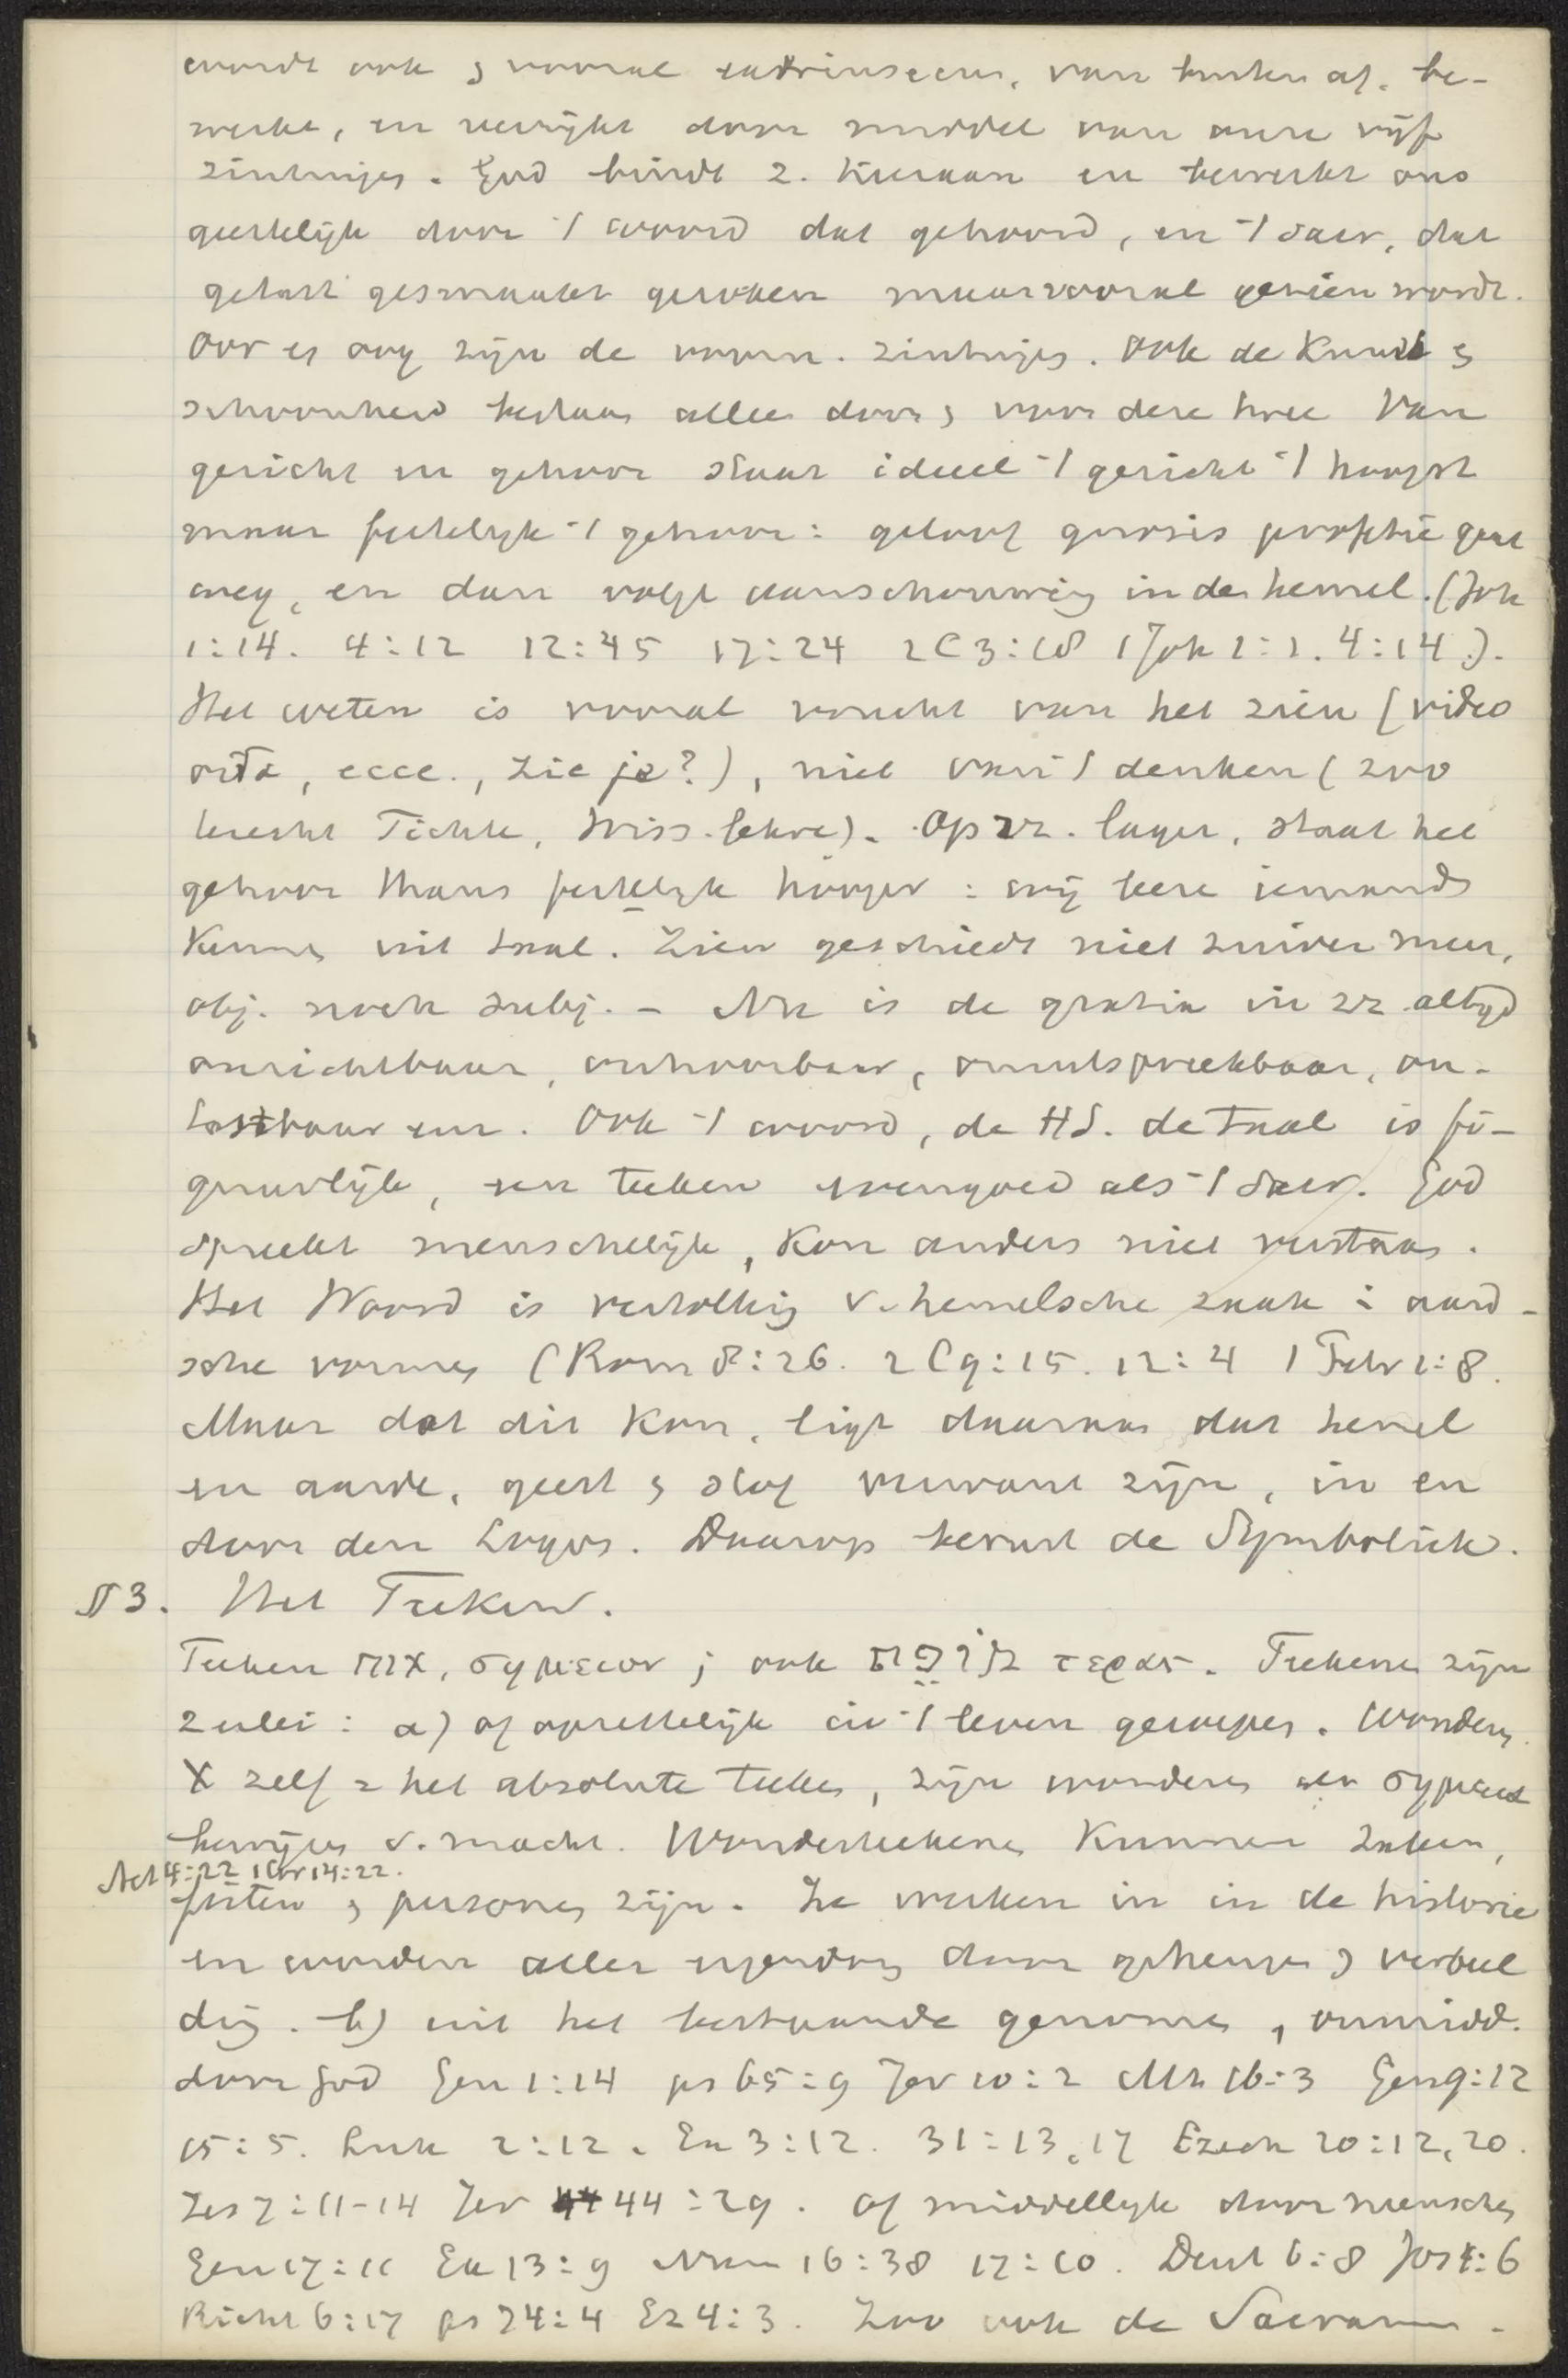 wordt ook & vooral extrinsecus, van buiten af, be-
werkt, en verrijkt door middel van onze vijf
zintuiges. God bindt z. hieraan en bewerkt ons
geestelijk door 't woord dat gehoord, en 't sacr. dat
getast gesmaakt geroken maar vooral gezien wordt.
Oor es oog zijn de voorn. zintuiges. Ook de Kunst &
schoonheid bestaas allee door & voor deze twee Van
gezicht en gehoor staat ideeel 't gezicht 't hoogst
maar feitelijk 't gehoor: geloof gnosis profetie gaat
weg, en dan volgt aanschouwing in den hemel. (Joh
1:14. 4:12 12:45 17:24 2C3:18 1Joh 1:1. 4:14).
Het weten is vooral vrucht van het zien (video
οιδα, ecce., zie je?), niet van 't denken (zoo
terecht Fichte, Wiss. lehre). Op zz. lager, staat het
gehoor thans feitelijk hooger: wij leere iemand
Kennes uit taal. Zien geschiedt niet zuiver meer,
obj. noch subj. - Nu is de gratia in zz. altijd
onzichtbaar, onhoorbaar, onuitspreekbaar, on-
tastbaar enz. Ook 't woord, de HS. de Taal is fi-
guurlijk, een teeken evengoed als 't sacr. God
spreekt menschelijk, Kon anders niet verstaas.
Het Woord is vertolkig v. hemelsche zaak i aard-
sche vormes (Rom 8:26. 2C9:15. 12:4 1 Petr 1:8.
Maar dat dit Kan, ligt daaraan dat hemel
en aarde, geest & stof verwant zijn, in en
door den Logos. Daarop berust de Symboliek.
§ 3. Het Teeken.
Teeken אות, σημειον; ook מופת τερας. Teekens zijn
2erlei: a) of opzettelijk in 't leven geroepes. Wonders.
X zelf = het absolute teeke, zijn wonderes zijn σημεια
bewijzes v. macht. Wonderteekenes Kunnen zaken,
Act 4:22 1 Cor 14:22.
feiten & persones zijn. Ze werken in in de historie
en worden aller
dig. b) uit het bestaande genomes, onmidd.
door God Gen 1:14 ps 65:9 Jer 10:2 Mt 16:3 Gen 9:12
15:5. Luk 2:12. Ex 3:12. 31:13,17 Ezech 20:12,20.
Jes 7:11-14 Jer 44:29. of middellijk door mensches
Gen 17:11 Ex 13:9 Num 16:38 17:10. Deut 6:8 Jos 4:6
Richt 6:17 ps 74:4 Ez 4:3. Zoo ook de Sacramen-